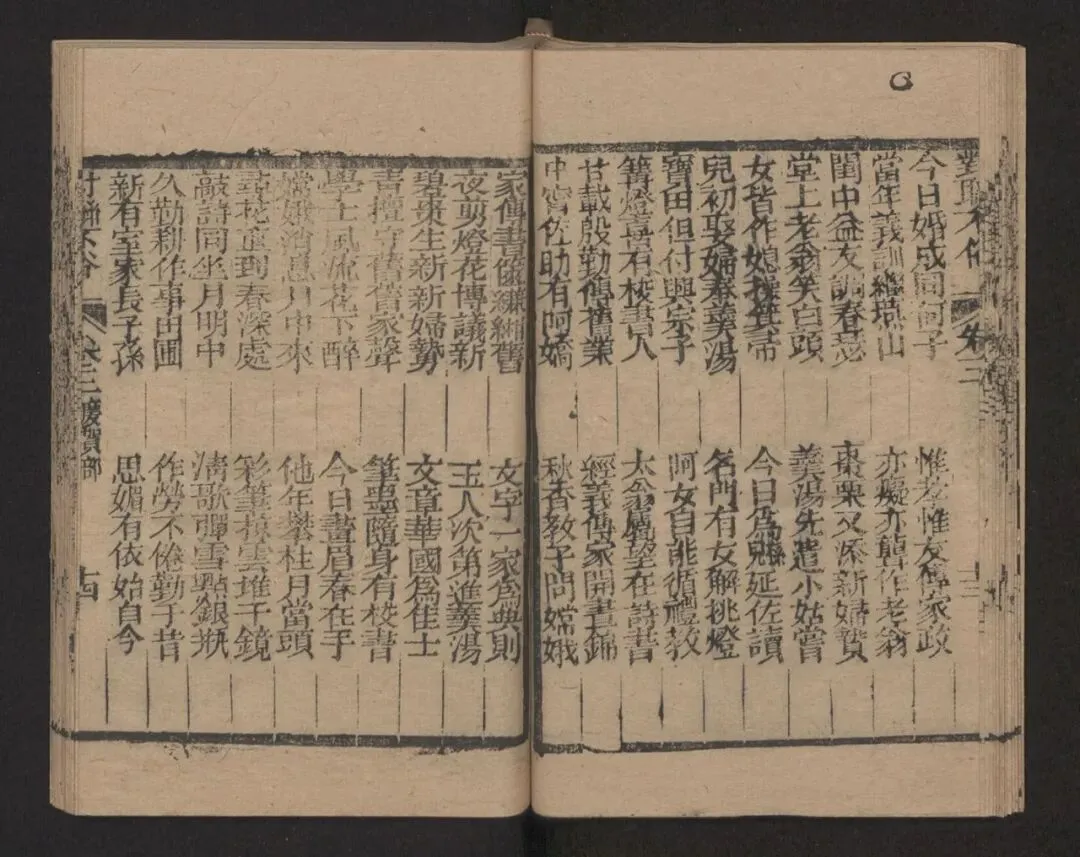 卷三
今日婚成同向子
當年義訓繼塗山
閨中益友調春瑟
堂上老翁笑白頭
女皆作媳操箕帚
兒初娶婦奉羹湯
寶田但付與宗子
篝燈喜有校書人
廿載殷勤傳舊業
中宵佐助有阿嬌
惟孝惟友傳家政
亦癡亦聾作老翁
棗栗又添新婦贄
羹湯先遣小姑嘗
今日爲兒延佐讀
名門有女解挑燈
阿女自能循禮教
太翁屬望在詩書
經義傳家開晝錦
秋香教子問嫦娥
家傳書 縑緗舊
夜剪燈花博議新
碧棗生新新婦贄
青氊守舊舊家聲
學士風流花下醉
嫦娥消息月中來
尋花直到春深處
敲詩同坐月明中
久勤耕作事田圃
新有室家長子孫
文字一家爲典則
玉人次第進羹湯
文章華國爲佳士
筆墨隨身有校書
今日畫眉春在手
他年攀桂月當頭
彩筆掠雲堆千鏡
清歌彈雪點銀瓶
作勞不倦勤于昔
思媚有依始自今
卷三 慶賀部 十四